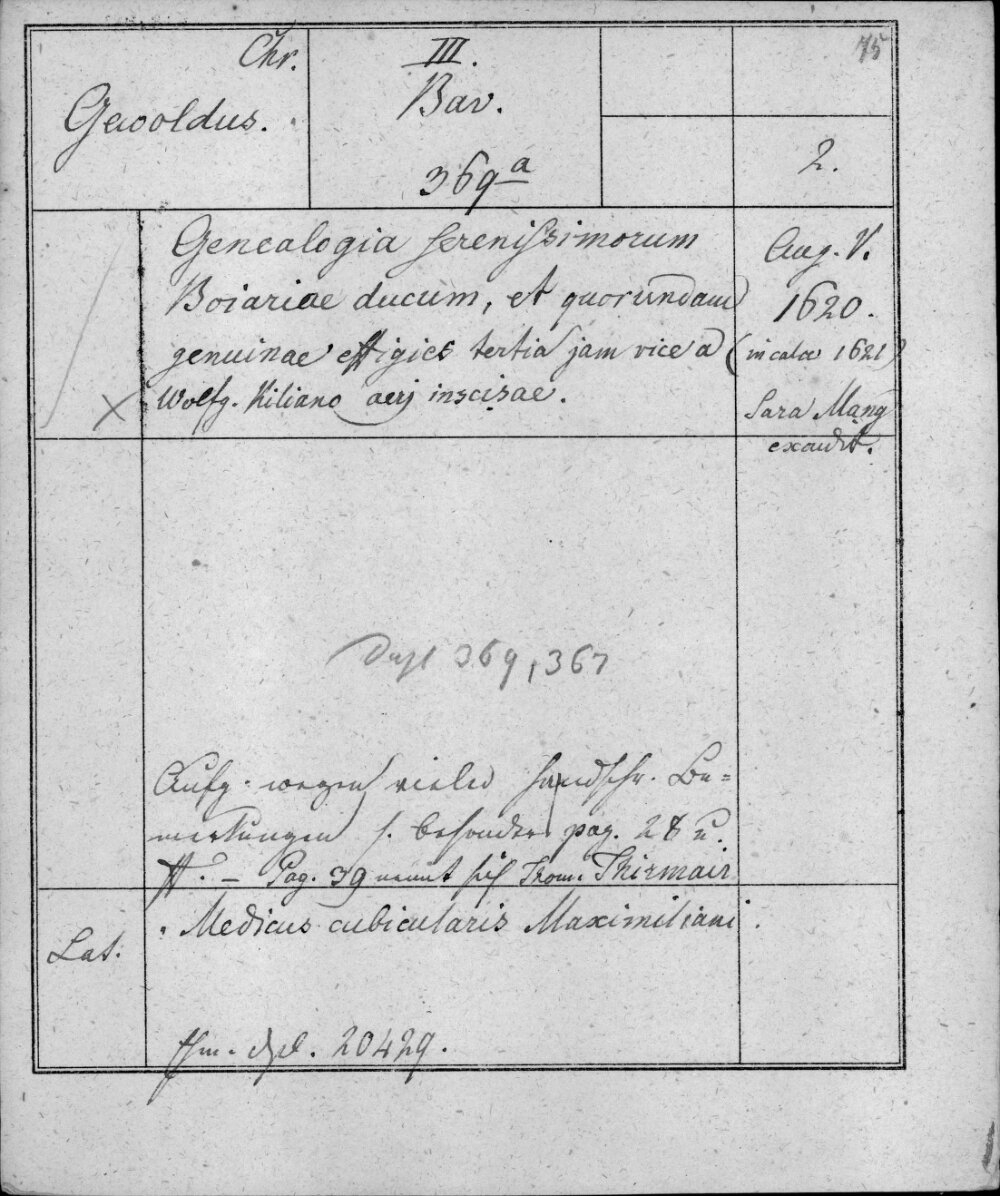 Chr.
Gewoldus.
III.
Bav.
369a
75
2.
Genealogia serenissimorum
Boiariae ducum, et quorundam
genuinae effigies tertia jam vice a
Wolfg. Kiliano aeri inscisae.
Aug. V.
1620.
(in calce 1621)
Sara Mang
excudit.
Dupl 369, 367
Aufg. wegen vieler handschr. Be-
merkungen s. besonders pag. 28 u.
ff. – Pag. 39 nennt sich Thom. Thirmair
Medicus cubicularis Maximiliani.
Lat.
dpl. 20429.